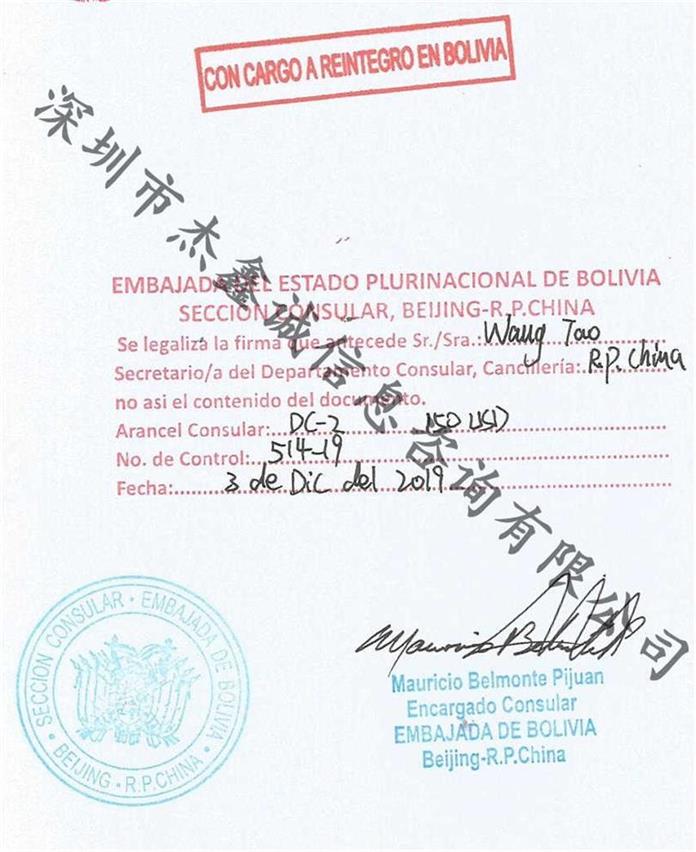 CON CARGO A REINTEGRO EN BOLIVIA
深圳市杰鑫诚信息咨询有限公司
EMBAJADA DEL ESTADO PLURINACIONAL DE BOLIVIA
SECCIÓN CONSULAR, BEIJING-R.P.CHINA
Se legaliza la firma que antecede Sr./Sra.: Wang Tao
Secretario/a del Departamento Consular, Cancillería: R.P. China
no asi el contenido del documento.
Arancel Consular: DC-2 150 USD
No. de Control: 514-19
Fecha: 3 de Dic del 2019
SECCION CONSULAR · EMBAJADA DE BOLIVIA
· BEIJING - R.P.CHINA ·
Mauricio Belmonte Pijuan
Encargado Consular
EMBAJADA DE BOLIVIA
Beijing-R.P.China